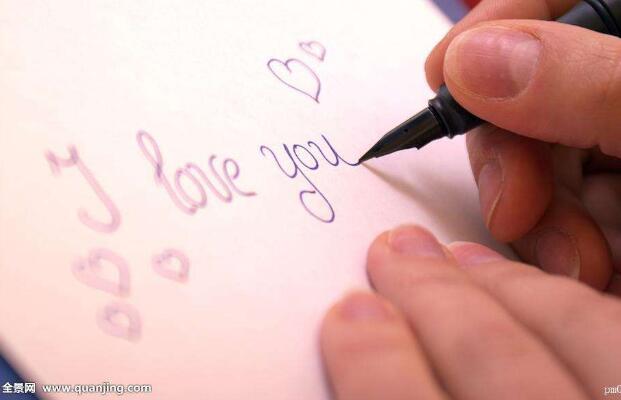 I love you
全景网 www.quanjing.com